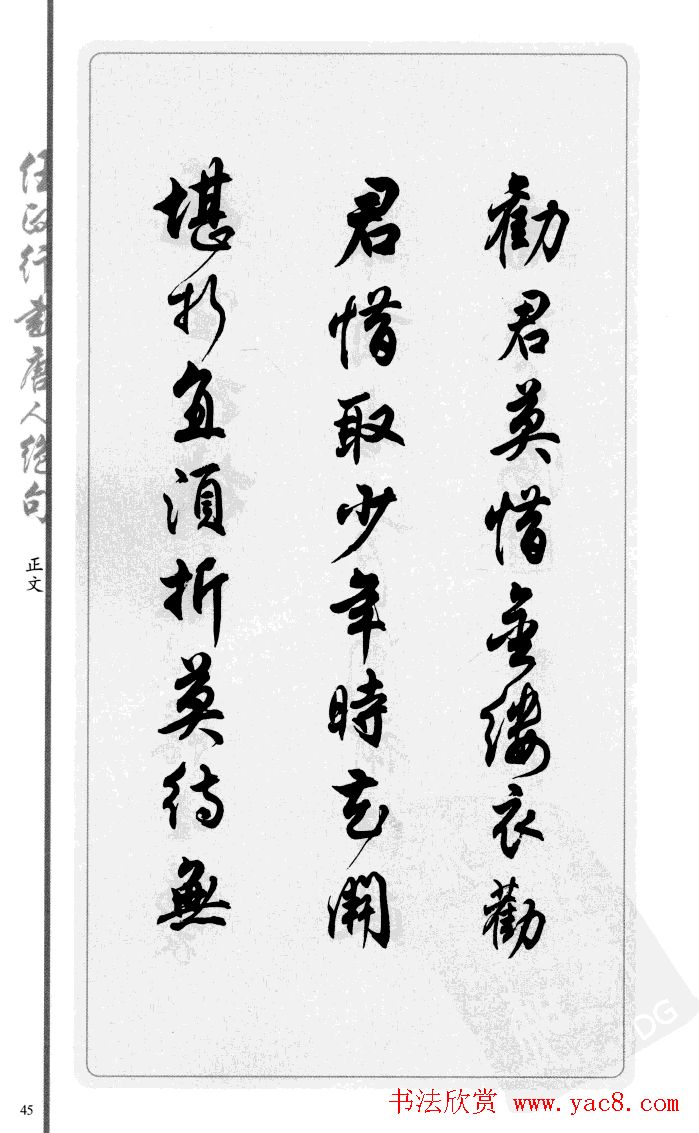 勸君莫惜金縷衣勸
君惜取少年時花開
堪折直須折莫待無
任政行書唐人絕句
正文
45
DG
书法欣赏 www.yac8.com